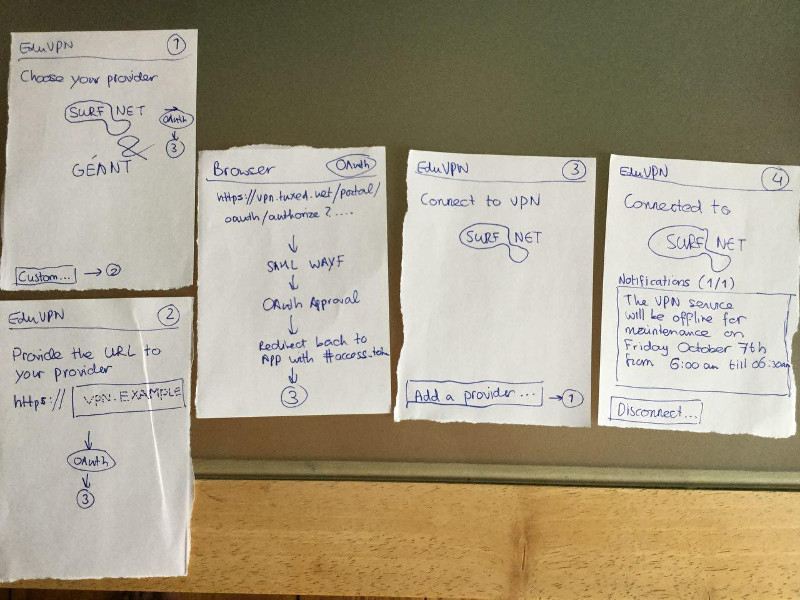 EduVPN 1
Choose your provider
SURF NET
OAuth
3
GÉANT
Custom... → 2
EduVPN 2
Provide the URL to
your provider
https:// VPN.EXAMPLE
OAuth
3
Browser OAuth
https://vpn.tuxed.net/portal/
oauth/authorize?....
SAML WAYF
OAuth Approval
Redirect back to
APP with #access_toke
3
EduVPN 3
Connect to VPN
SURF NET
Add a provider... → 1
EduVPN 4
Connected to
SURF NET
Notifications (1/1)
The VPN service
will be offline for
maintenance on
Friday October 7th
from 6:00 am till 06:30am
Disconnect...